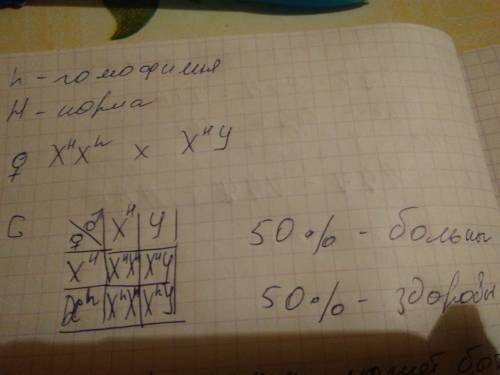 h - гомофилия
H - норма
♀ XᴴXʰ × XᴴY
G
♀♂ Xᴴ Y
Xᴴ XᴴXᴴ XᴴY
Xʰ XʰXᴴ XʰY
50% - больны
50% - здоровы
может